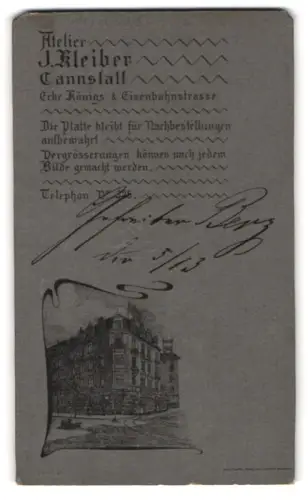 Atelier
J. Kleiber
Cannstatt
Ecke Königs & Eisenbahnstrasse
Die Platte bleibt für Nachbestellungen
aufbewahrt
Vergrösserungen können nach jedem
Bilde gemacht werden.
Telephon No
Gefreiter Berg
5/13